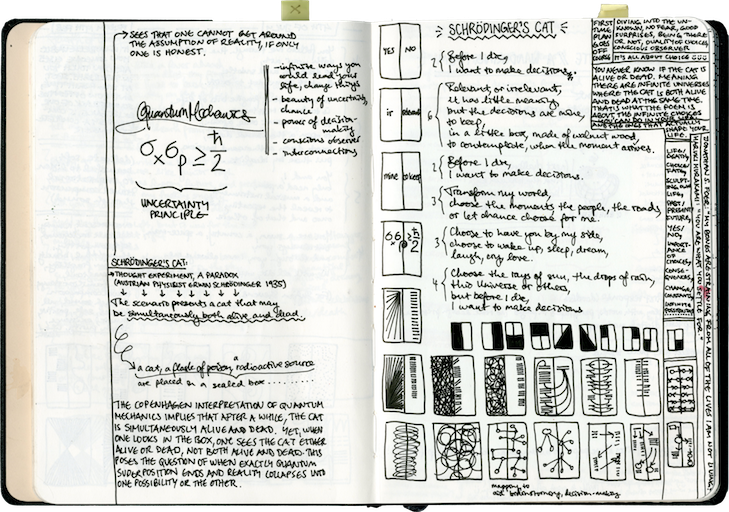 → SEES THAT ONE CANNOT GET AROUND
THE ASSUMPTION OF REALITY, IF ONLY
ONE IS HONEST.
- infinite ways you
could lead your
life, change things
- beauty of uncertainty,
chance
- power of decision-
making
- conscious observer
- interconnections
Quantum Mechanics
σxσp ≥ ħ/2
UNCERTAINTY
PRINCIPLE
SCHRÖDINGER'S CAT:
→ THOUGHT EXPERIMENT, A PARADOX
(AUSTRIAN PHYSICIST ERWIN SCHRÖDINGER 1935)
The scenario presents a cat that may
be simultaneously both alive and dead.
a cat, a flask of poison, a radioactive source
are placed in a sealed box ........
THE COPENHAGEN INTERPRETATION OF QUANTUM
MECHANICS IMPLIES THAT AFTER A WHILE, THE CAT
IS SIMULTANEOUSLY ALIVE AND DEAD. YET, WHEN
ONE LOOKS IN THE BOX, ONE SEES THE CAT EITHER
ALIVE OR DEAD, NOT BOTH ALIVE AND DEAD. THIS
POSES THE QUESTION OF WHEN EXACTLY QUANTUM
SUPERPOSITION ENDS AND REALITY COLLAPSES INTO
ONE POSSIBILITY OR THE OTHER.
SCHRÖDINGER'S CAT
YES NO
2 Before I die,
I want to make decisions.
6 Relevant, or irrelevant,
it has little meaning
but the decisions are mine,
to keep,
in a little box, made of walnut wood,
to contemplate, when the moment arrives.
2 Before I die,
I want to make decisions.
mine to keep
3 Transform my world,
choose the moments, the people, the roads,
or let chance choose for me.
3 Choose to have you by my side,
choose to wake up, sleep, dream,
laugh, cry, love.
4 Choose the rays of sun, the drops of rain,
this Universe or others,
but before I die,
I want to make decisions
FIRST
TIME
PLAN
GOES
OFF
DIVING INTO THE UN-
KNOWN, NO FEAR, GOOD
SURPRISES, BEING THERE
OR NOT, QUALITATIVE CHOICES,
CONSCIOUS OBSERVER
IT'S ALL ABOUT CHOICE
YOU NEVER KNOW IF THE CAT IS
ALIVE OR DEAD. MEANING
THERE ARE INFINITE UNIVERSES
WHERE THE CAT IS BOTH ALIVE
AND DEAD AT THE SAME TIME.
THAT'S WHAT THE POEM IS
ABOUT. THE INFINITE CHOICES
YOU CAN DO IN YOUR LIFE
AND THE ONES THAT ACTUALLY
SHAPE YOUR
LIFE.
LIFE/
DEATH,
CHOICE/
FATE,
SCULPT-
ING OUR
LIFE,
PAST/
PRESENT/
FUTURE,
YES/
NO,
IMPORT-
ANCE
OF
CHOICES,
CONSE-
QUENCES,
CHANGE/
CONSTANT,
INFINITE
POSSIBILITIES
JONATHAN S. FOER: "MY BONES ARE STRAINING FROM ALL OF THE LIVES I AM NOT LIVING."
HARUKI MURAKAMI: "YOU ARE WHAT YOU SETTLE FOR."
mapping to
decision-making